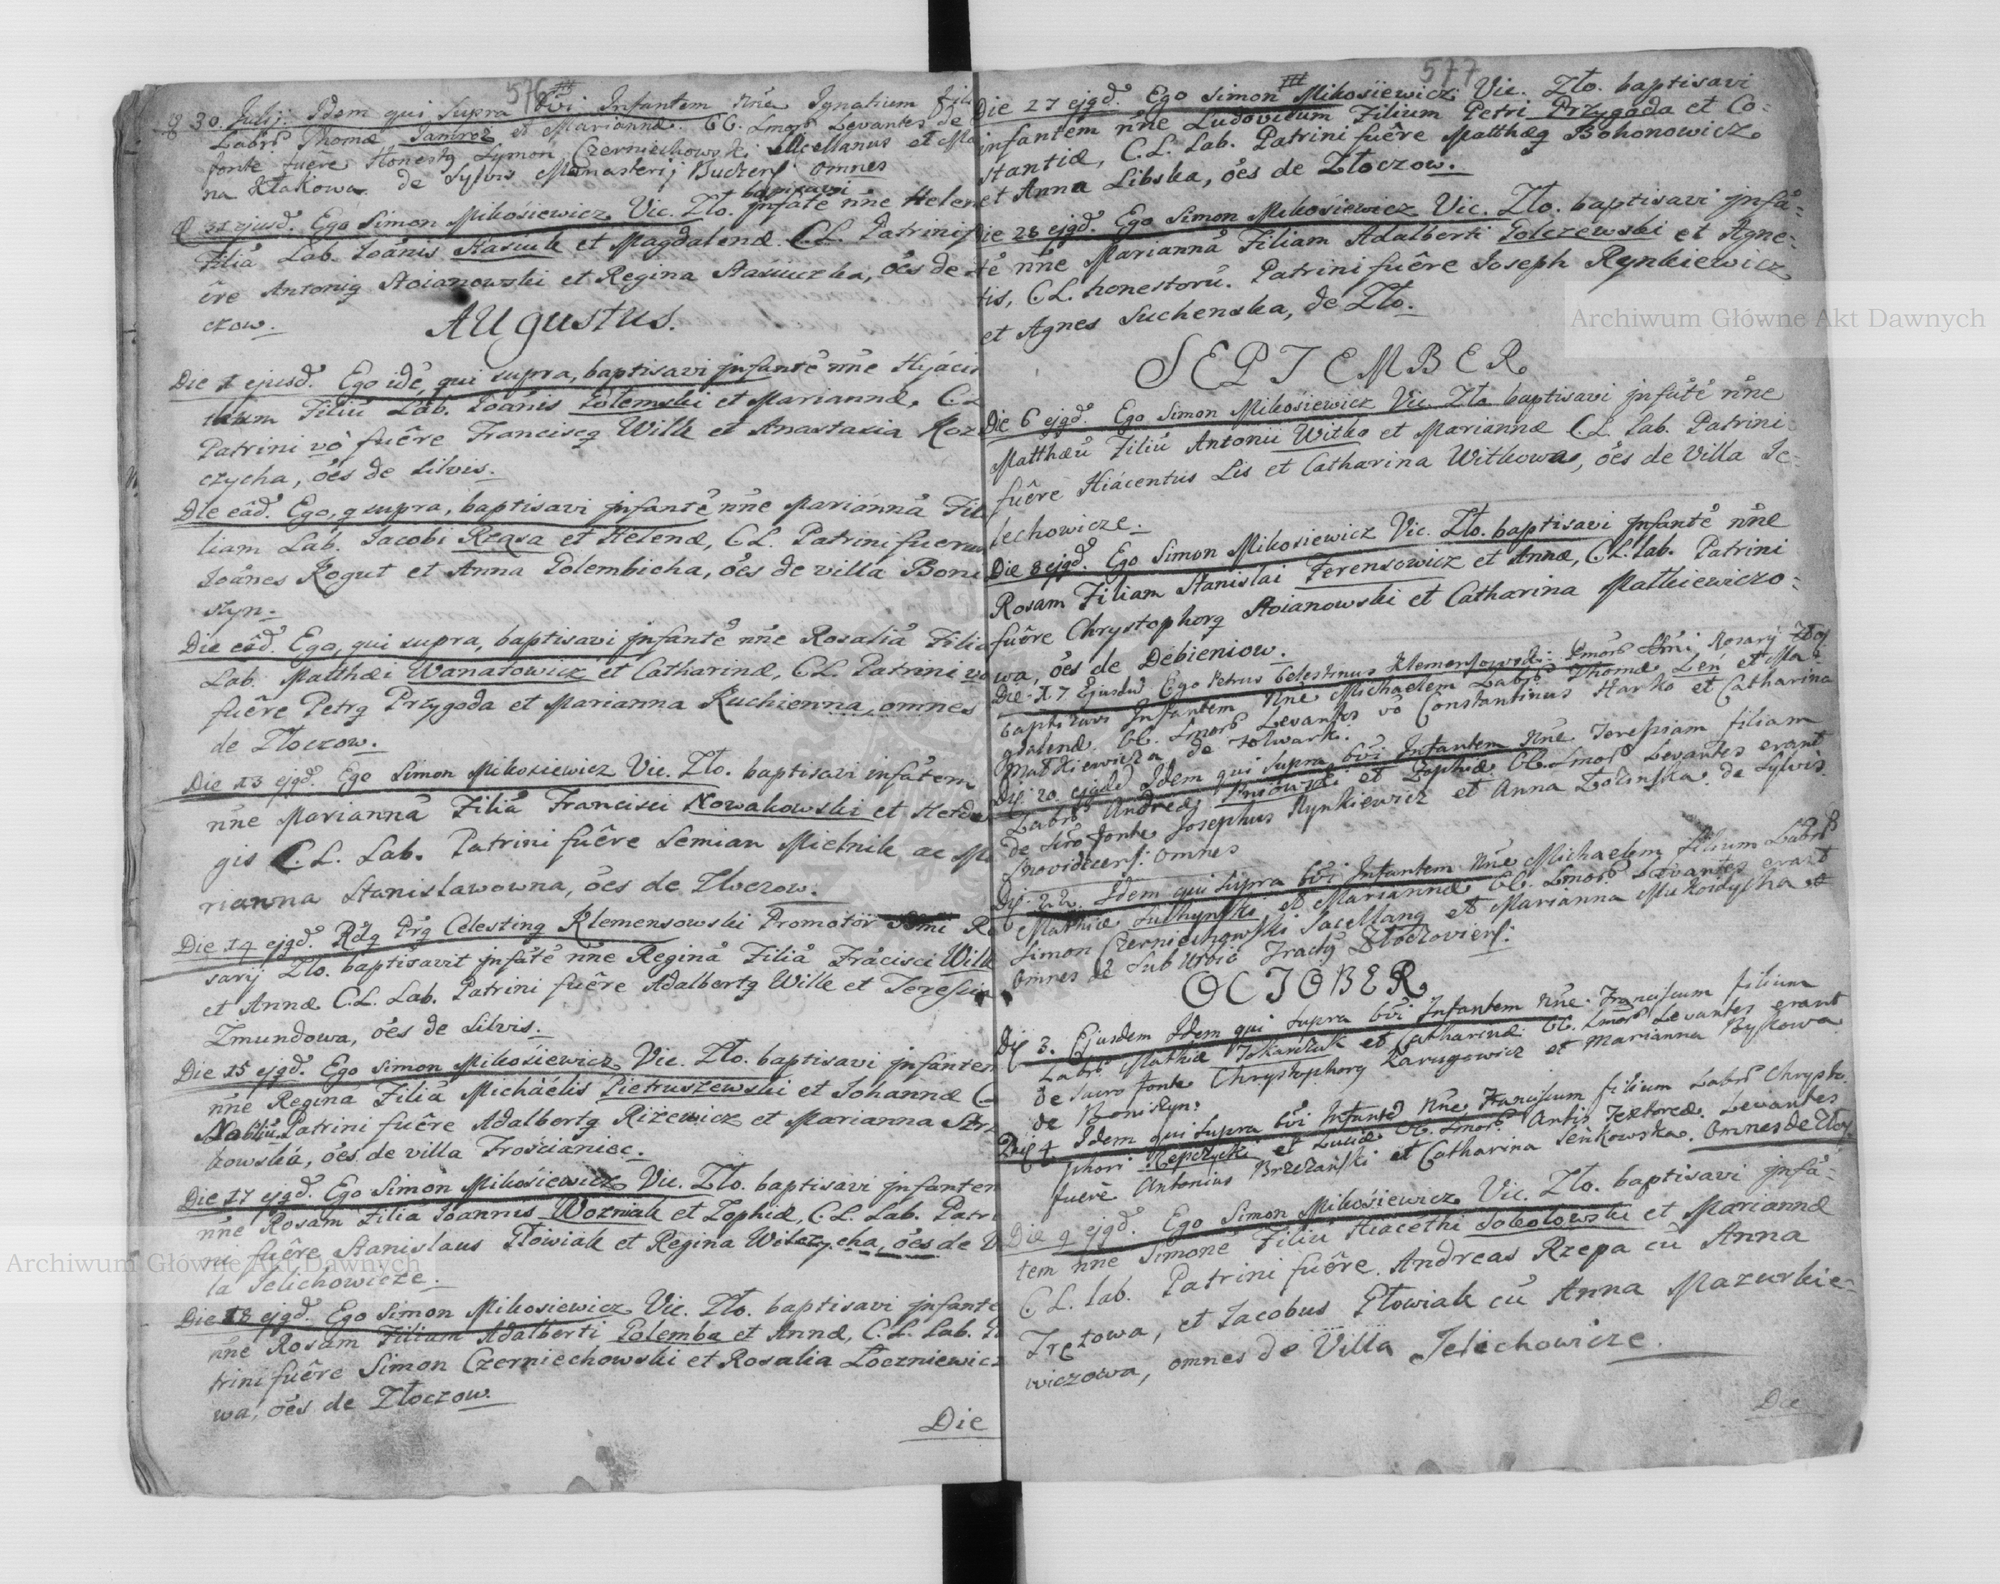 576
30. Julij. Idem qui supra bvi Infantem nñe Ignatium fili
Labrs Thomæ Jambroz et Mariannæ. CC. Lmors Levantes de
fonte fuere Honesty Symon Czerniechowski et Ma
na Żłakowa de Sylvis Monasterij Buczens omnes
baptisavi
31 ejusd. Ego Simon Mikosiewicz Vic. Zło. jnfãtẽ nñe Helen
Filiã Lab. Joãnis Stasiuk et Magdalenæ C.L. Patrini f
êre Antonig Stoianowski et Regina Stasiuczka, oẽs de
czow.
AUGUSTUS.
Die 1 ejusd. Ego idẽ, qui supra, baptisavi jnfantẽ nñe Hyacin
thum Filiũ Lab. Joãnis Golemski et Mariannæ, C.L.
Patrini vò fuêre Franciscq Wilk et Anastasia Koz
czycha, oẽs de Silvis.
Die eãd. Ego, q supra, baptisavi jnfantẽ nñe Mariannã Fil
liam Lab. Jacobi Rząsa et Helenæ, C.L. Patrini fuerun
Joãnes Kogut et Anna Golembicha, oẽs de villa Boni
szyn.
Die eãd. Ego, qui supra, baptisavi jnfantẽ nñe Rosaliã Filiã
Lab. Matthæi Wanatowicz et Catharinæ, C.L. Patrini vò
fuêre Petrq Przygoda et Marianna Kuchienna, omnes
de Złoczow.
Die 13 ejqd. Ego Simon Mikosiewicz Vic. Zło. baptisavi infãtem
nñe Mariannã Filiã Francisci Nowakowski et Hedw
gis C.L. Lab. Patrini fuêre Semian Mielnik ac Ma
rianna Stanislawowna, oẽs de Złoczow.
Die 14 ejqd. Rdq Prq Celestinq Klemensowski Promotor Ssmi Ro
sarij Zło. baptisavit jnfãtẽ nñe Reginã Filiã Frãcisci Wilk
et Annæ C.L. Lab. Patrini fuêre Adalbertq Wilk et Teresia
Zmundowa, oẽs de Silvis.
Die 15 ejqd. Ego Simon Mikosiewicz Vic. Zło. baptisavi jnfanten
nñe Reginã Filiã Michaélis Pietruszewski et Johannæ C
Nobiliũ. Patrini fuêre Adalbertq Rizewicz et Marianna Str
kowska, oẽs de villa Troscianiec.
Die 17 ejqd. Ego Simon Mikosiewicz Vic. Zło. baptisavi jnfanten
nñe Rosam Filiã Joannis Wozniak et Zophiæ, C.L. Lab. Patri
ni fuêre Stanislaus Płowiak et Regina Wilczycha, oẽs de V
la Jelichowicze.
Die 18 ejqd. Ego Simon Mikosiewicz Vic. Zło. baptisavi jnfante
nñe Rosam Filiam Adalberti Golemba et Annæ, C.L. Lab. P
trini fuêre Simon Czerniechowski et Rosalia Łoczniewicz
wa, oẽs de Złoczow.
Die
577
Die 27 ejqd. Ego Simon Mikosiewicz Vic. Zło. baptisavi
infantem nñe Ludovicum Filium Petri Przygoda et Co-
stantiæ, C.L. Lab. Patrini fuêre Matthæq Bohonowicz
et Anna Libska, oẽs de Złoczow.
Die 28 ejqd. Ego Simon Mikosiewicz Vic. Zło. baptisavi jnfã-
tẽ nñe Mariannã Filiam Adalberti Golczewski et Agne-
tis, C.L. honestorũ. Patrini fuêre Joseph Rynkiewicz
et Agnes Suchenska, de Zło.
SEPTEMBER
Die 6 ejqd. Ego Simon Mikosiewicz Vic. Zło baptisavi jnfãtẽ nñe
Matthæũ Filiũ Antonii Witko et Mariannæ C.L. Lab. Patrini
fuêre Hiacentus Lis et Catharina Witkowa, oẽs de Villa Je-
lechowicze.
Die 8 ejqd. Ego Simon Mikosiewicz Vic. Zło. baptisavi jnfantẽ nñe
Rosam Filiam Stanislai Ferensowicz et Annæ, C.L. Lab. Patrini
fuêre Chrystophorq Stoianowski et Catharina Matkiewiczo-
wa, oẽs de Debieniow.
Die 17 Ejusd Ego Petrus Celestinus Klemensowski Pmors Ssmi Rosarij Złoy
baptizavi Infantem Nñe Michaelem Labrs Thomæ Leń et Ma-
gdalenæ CC. Lmors Levantes vo Constantinus Harko et Catharina
Matkiewicza de folwark.
Die 20 ejusd Idem qui supra bvi Infantem Nñe Teressiam filiam
Labrs Andreæ et Zophiæ CC. Lmors Levantes erant
de Sacro fonte Josephus Rynkiewicz et Anna Zolinska de Sylvis
omnes
Die 22. Idem qui supra bvi Infantem Nñe Michaelem filium Labrs
Mathiæ et Mariannæ CC. Lmors Levantes erant
Simon Czerniechowski et Marianna Mukoidycha et
Omnes de Suburbio Złoczoviens:
OCTOBER
Die 3. Ejusdem Idem qui supra bvi Infantem Nñe Franciscum filium
Labrs Mathiæ Tokarczuk et Catharinæ CC. Lmors Levantes erant
de Sacro fonte Chrystophorq Karugowicz et Marianna Łyskowa
de Boniszyn:
Die 4 Idem qui supra bvi Infantẽ Nñe Franciscum filium Labrs Chrysto
phori Kepczycki et Luciæ CC. Lmors Artis Textoreæ Levantes
fuerẽ Antonius Brzezański et Catharina Seńkowska. Omnes de Złoy.
Die 9 ejqd. Ego Simon Mikosiewicz Vic. Zło. baptisavi jnfã-
tem nñe Simonẽ Filiũ Hiacẽthi Sokolowski et Mariannæ
C.L. Lab. Patrini fuêre Andreas Rzepa cũ Anna
Fretowa, et Jacobus Płowiak cũ Anna Mazurkie-
wiczowa, omnes de Villa Jelechowicze.
Die
Archiwum Główne Akt Dawnych
Archiwum Główne Akt Dawnych